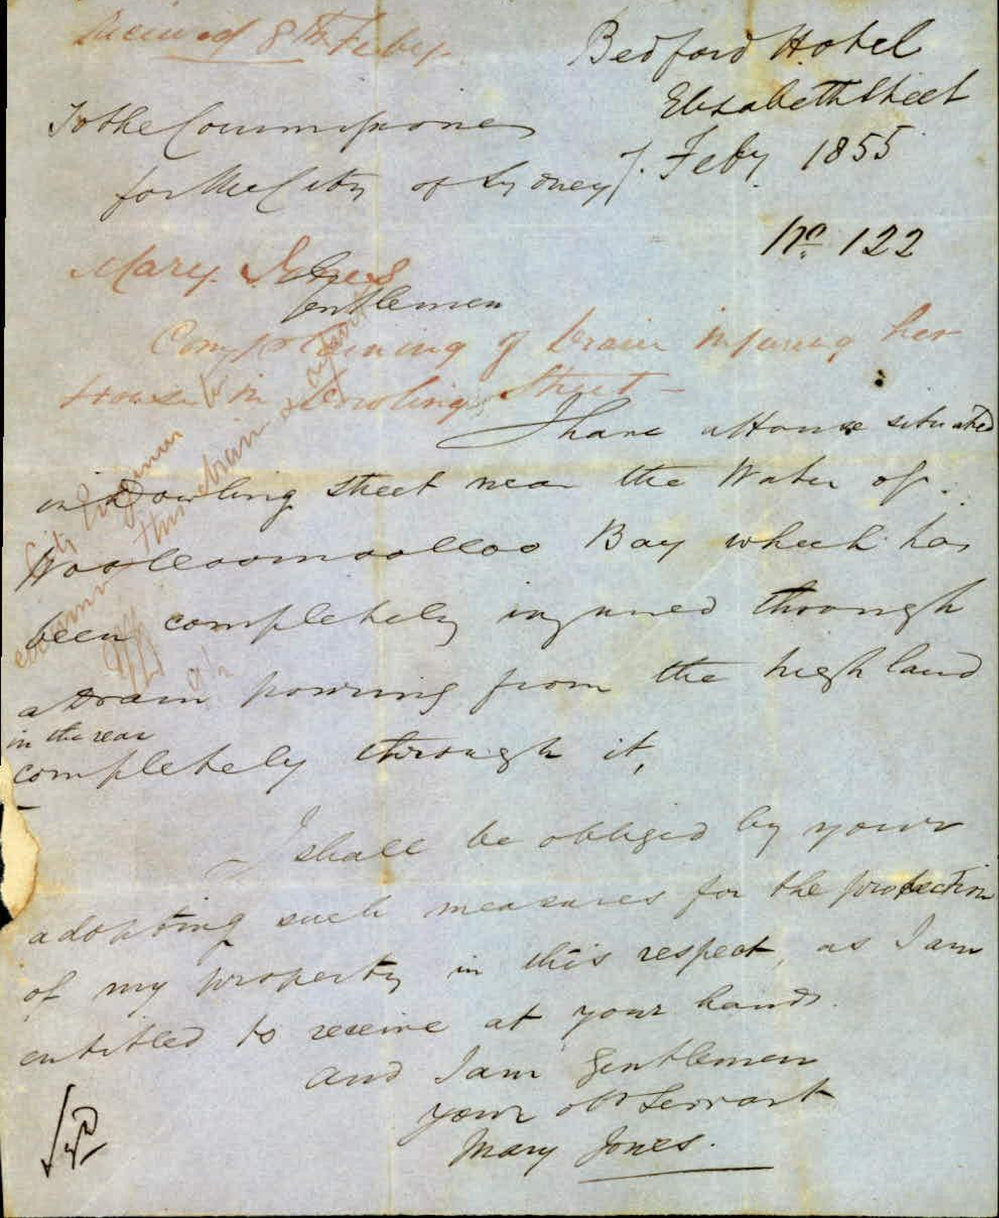 Received 8th Feby.
Bedford Hotel
Elizabeth Street
7. Feby 1855
To the Commissioners
for the City of Sydney
No. 122
Mary Jones
Gentlemen
Complaining of drain injuring her
House in Dowling Street
I have a House situated
in Dowling Street near the Water of
Woolloomoolloo Bay which has
been completely injured through
a Drain pouring from the high land
in the rear
completely through it,
I shall be obliged by your
adopting such measures for the protection
of my property in this respect, as I am
entitled to receive at your hands.
and I am Gentlemen
your obt Servant
Mary Jones.
City Engineer to
this drain &